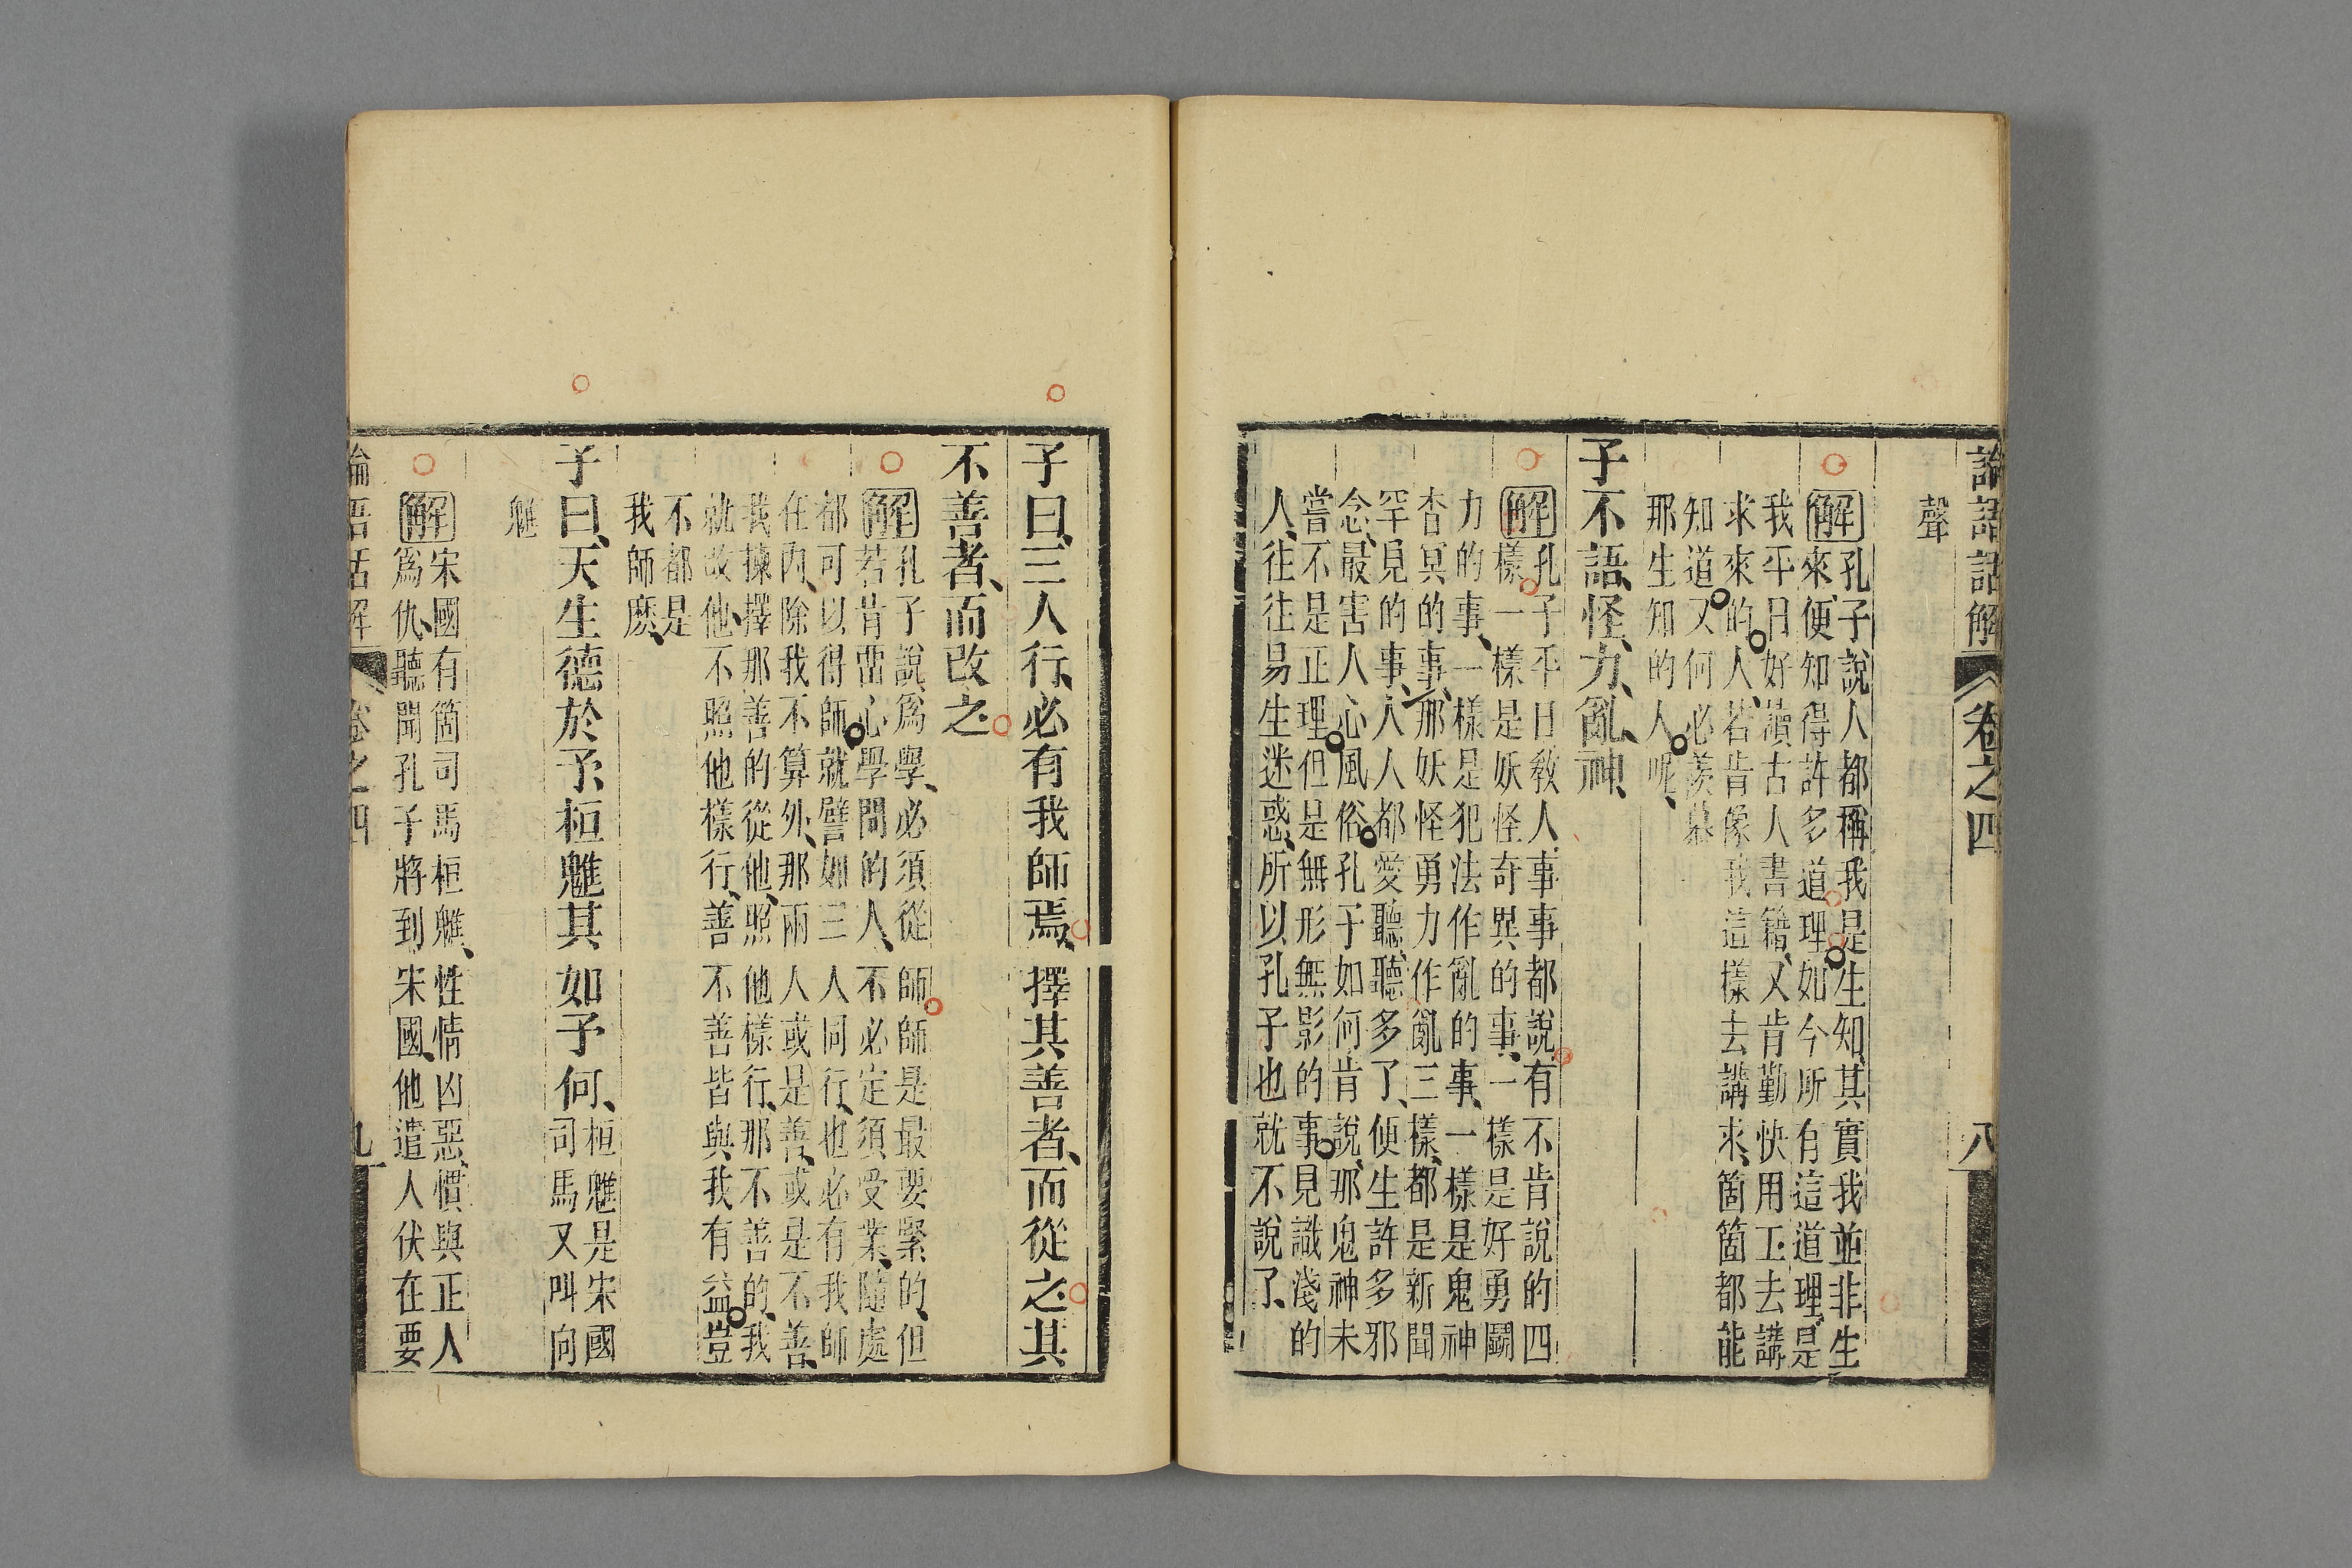 論語話解 卷之四 八
聲
解孔子說人都稱我是生知、其實我並非生
來便知得許多道理、如今所有這道理、是
我平日好讀古人書籍、又肯勤快用工去講
求來的人、若肯像我這樣去講求、箇箇都能
知道、又何必羨慕
那生知的人呢、
子不語、怪、力、亂、神、
解孔子平日敎人、事事都說、有不肯說的四
樣、一樣是妖怪奇異的事、一樣是好勇鬬
力的事、一樣是犯法作亂的事、一樣是鬼神
杳冥的事、那妖怪勇力作亂三樣、都是新聞
罕見的事、人人都愛聽、聽多了、便生許多邪
念、最害人心風俗、孔子如何肯說、那鬼神未
嘗不是正理、但是無形無影的事、見識淺的
人、往往易生迷惑、所以孔子也就不說了、
子曰、三人行、必有我師焉、擇其善者、而從之、其
不善者、而改之、
解孔子說、爲學、必須從師、師是最要緊的、但
若肯畱心學問的人、不必定須受業、隨處
都可以得師、就譬如三人同行、也必有我師
任內、除我不算外、那兩人或是善、或是不善、
我揀擇那善的從他、照他樣行、那不善的、我
就改他、不照他樣行、善不善皆與我有益、豈
不都是
我師麽、
子曰、天生德於予、桓魋其如予何、桓魋是宋國
司馬又叫向
魋
解宋國有箇司馬桓魋、性情凶惡、慣與正人
爲仇、聽聞孔子將到宋國、他遣人伏在要
論語話解 卷之四 九